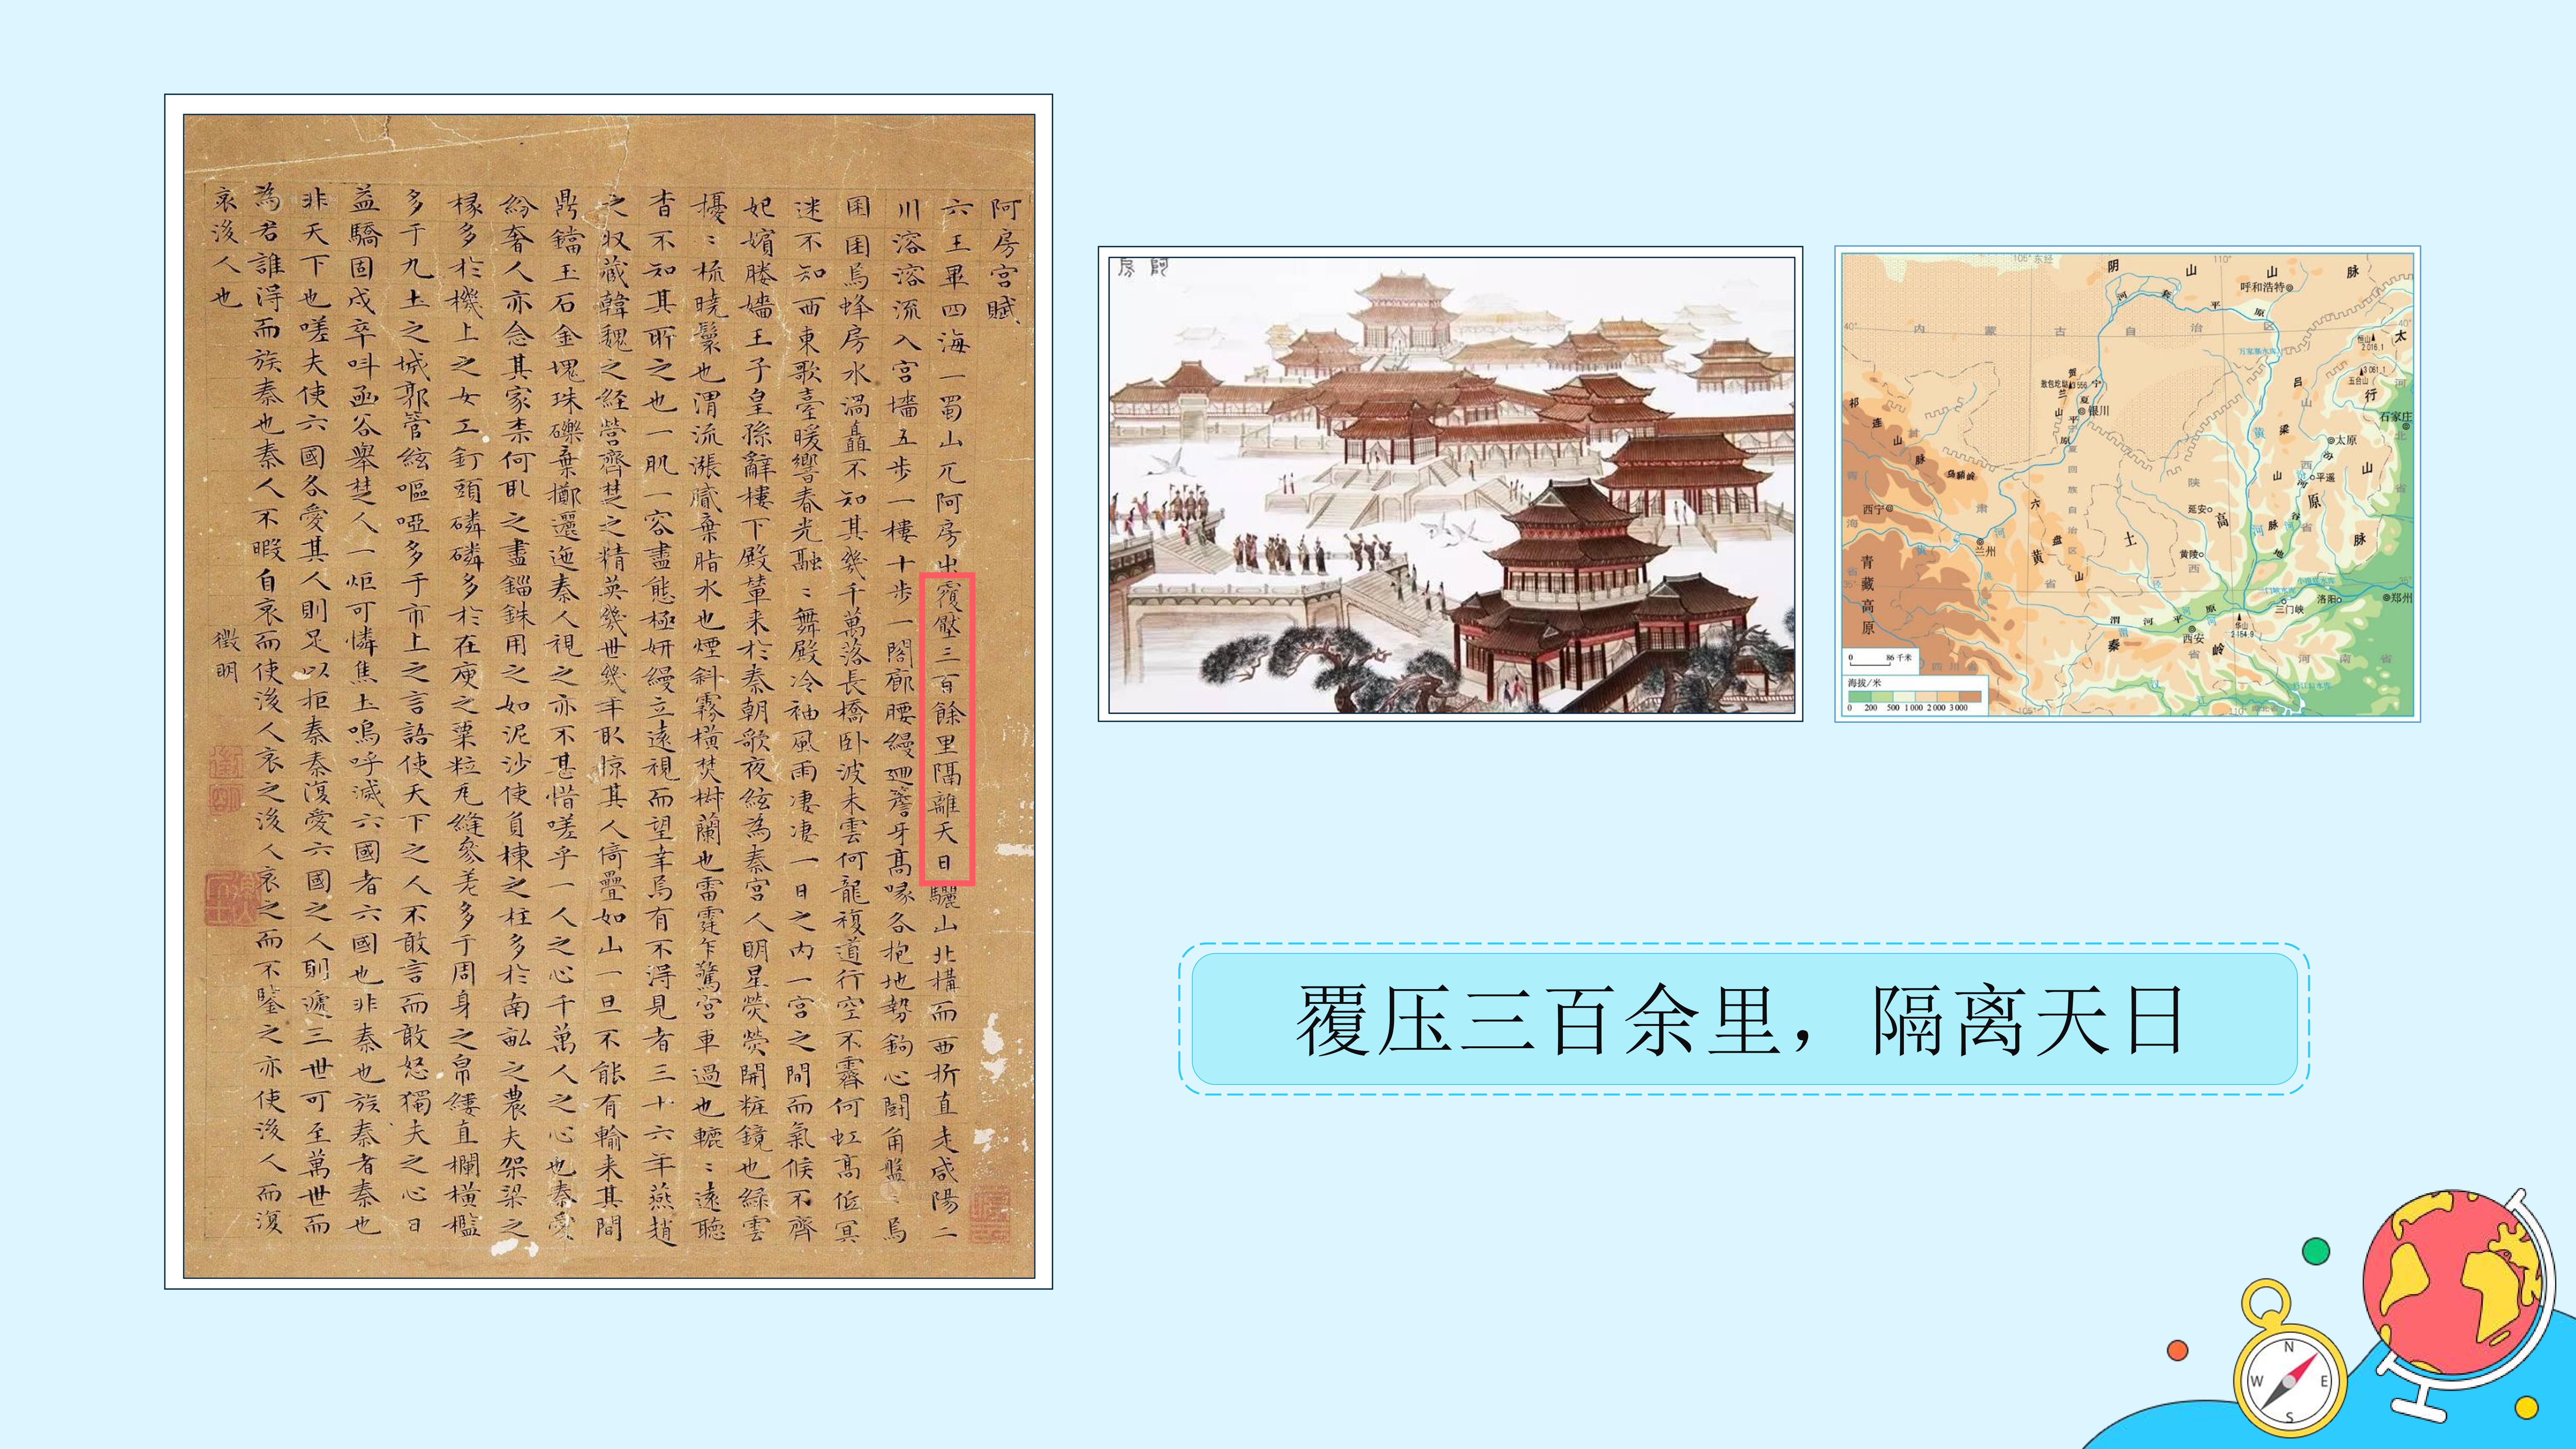 阿房宮賦
六王畢四海一蜀山兀阿房出覆壓三百餘里隔離天日驪山北構而西折直走咸陽二
川溶溶流入宮墻五步一樓十步一閣廊腰縵迴簷牙高啄各抱地勢鉤心鬪角盤〻焉
囷囷焉蜂房水渦矗不知其幾千萬落長橋卧波未雲何龍複道行空不霽何虹高低冥
迷不知西東歌臺暖響春光融〻舞殿冷袖風雨凄凄一日之內一宮之間而氣候不齊
妃嬪媵嬙王子皇孫辭樓下殿輦来於秦朝歌夜絃為秦宮人明星熒熒開粧鏡也綠雲
擾〻梳曉鬟也渭流漲膩棄脂水也煙斜霧橫焚椒蘭也雷霆乍驚宮車過也轆〻遠聽
杳不知其所之也一肌一容盡態極妍縵立遠視而望幸焉有不得見者三十六年燕趙
之収藏韓魏之経營齊楚之精英幾世幾年取掠其人倚疊如山一旦不能有輸来其間
鼎鐺玉石金塊珠礫棄擲邐迤秦人視之亦不甚惜嗟乎一人之心千萬人之心也秦愛
紛奢人亦念其家柰何取之盡錙銖用之如泥沙使負棟之柱多於南畝之農夫架梁之
椽多於機上之女工釘頭磷磷多於在庾之粟粒瓦縫參差多于周身之帛縷直欄橫檻
多于九土之城郭管絃嘔啞多于市上之言語使天下之人不敢言而敢怒獨夫之心日
益驕固戍卒叫函谷舉楚人一炬可憐焦土嗚呼滅六國者六國也非秦也族秦者秦也
非天下也嗟夫使六國各愛其人則足以拒秦秦復愛六國之人則遞三世可至萬世而
為君誰得而族秦也秦人不暇自哀而使後人哀之後人哀之而不鑒之亦使後人而復
哀後人也
徵明
阿房
105° 东经
110°
阴 山 山 脉
呼和浩特
河 套 平 原
40°
内 蒙 古 自 治 区
40°
万家寨水库
恒山
2 016.1
太
行
山
脉
3 061.1
五台山
贺 兰 山
敖包圪垯 3 556
宁 夏 平 原
银川
吕 梁 山 脉
石家庄
河 北 省
祁 连 山 脉
太原
平遥
乌鞘岭
宁 夏 回 族 自 治 区
陕 西 省
延安
西宁
青 海 省
甘 肃 省
兰州
六 盘 山
黄 土 高 原
黄陵
青 藏 高 原
35°
35°
三门峡
洛阳
郑州
渭 河 平 原
西安
华山
2 154.9
秦 岭
河 南 省
四 川 省
汉 江
0 86 千米
海拔/米
0 200 500 1 000 2 000 3 000
105°
110°
覆压三百余里，隔离天日
N
W E
S